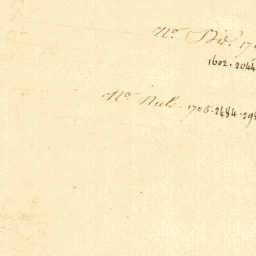 No. Div. 17
1602. 2044
No. Nul. 1705. 2684. 29